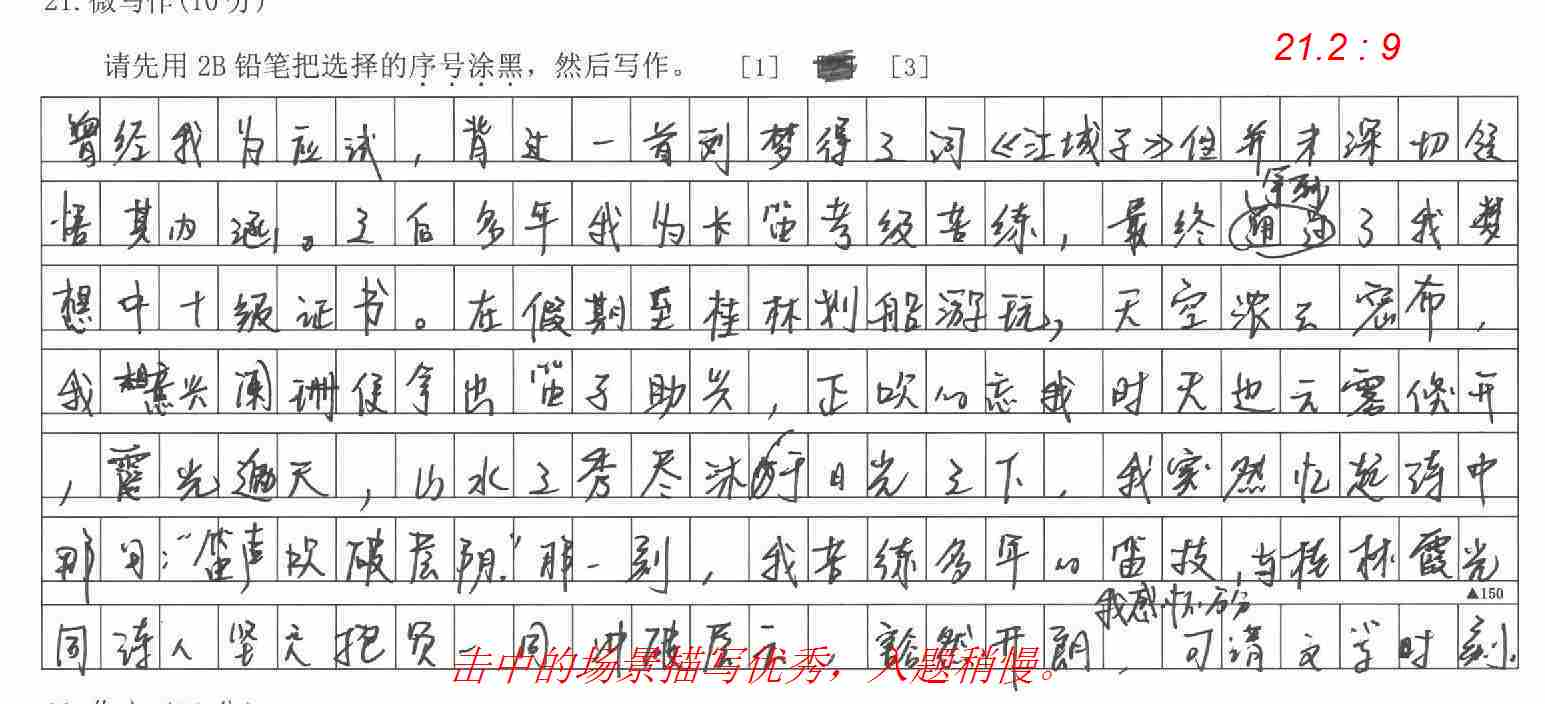 21.微写作(10分)
21.2 : 9
请先用 2B 铅笔把选择的序号涂黑，然后写作。 [1] [3]
曾经我为应试，背过一首刘梦得之词《江城子》但并未深切领
悟其内涵。之后多年我为长笛考级苦练，最终拿到了我梦
想中十级证书。在假期至桂林划船游玩，天空浓云密布，
我意兴阑珊便拿出笛子助兴，正吹的忘我时天边云雾倏开
，霞光遍天，山水之秀尽沐于日光之下，我突然忆起诗中
那句：“笛声吹破层阴”那一刻，我苦练多年的笛技，与桂林霞光
▲150
我感怀万分
同诗人坚定抱负一同冲破层云，豁然开朗，可谓文学时刻。
击中的场景描写优秀，入题稍慢。